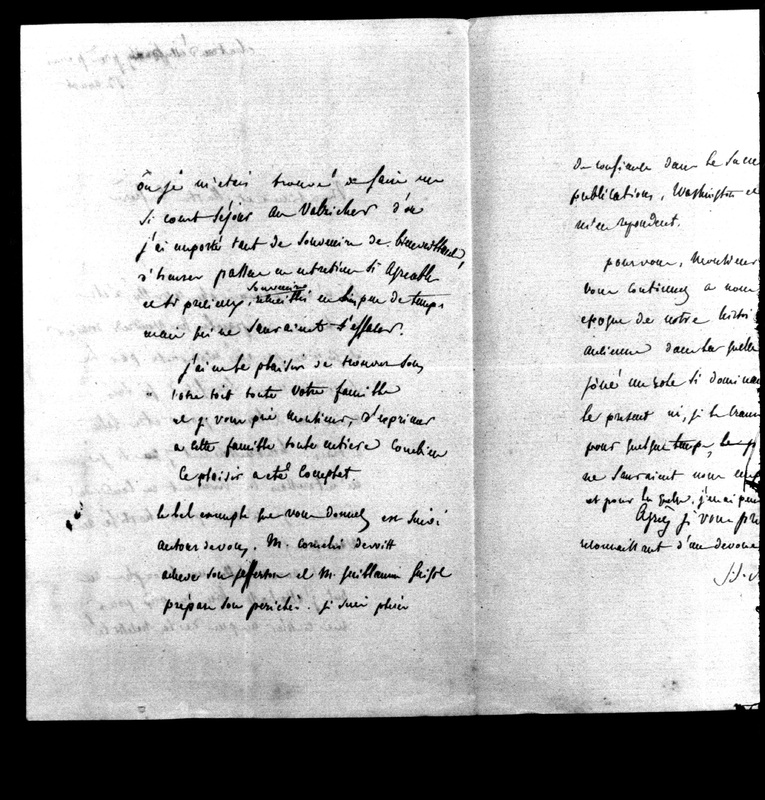 où je m'étais trouvé de faire un
si court séjour au Valricher d'où
j'ai emporté tant de souvenirs de bienveillance,
d'heures passées en entretiens si agréables
et si précieux, souvenirs recueillis en bien peu de temps
mais qui ne sauraient s'effacer.
j'ai eu le plaisir de trouver sous
votre toit toute votre famille
et je vous prie Monsieur, d'exprimer
a cette famille toute entiere combien
ce plaisir a été complet
le bel exemple que vous donnez est suivi
autour de vous. M. Cornelis de Witt
acheve son Jefferson et M. Guillaume Guizot
prépare son periclès. je suis plein
de confiance dans le succe
publications, Washington et
m'en repondent.
pour vous, Monsieur
vous continuez a nous
epoque de notre histoi
ancienne dans laquelle
joué un role si dominan
le present ni, je le crains
pour quelque temps,
ne sauraient nous
et pour la quelle j'en ai peur
Agréez je vous prie
reconnaissant d'un devoue